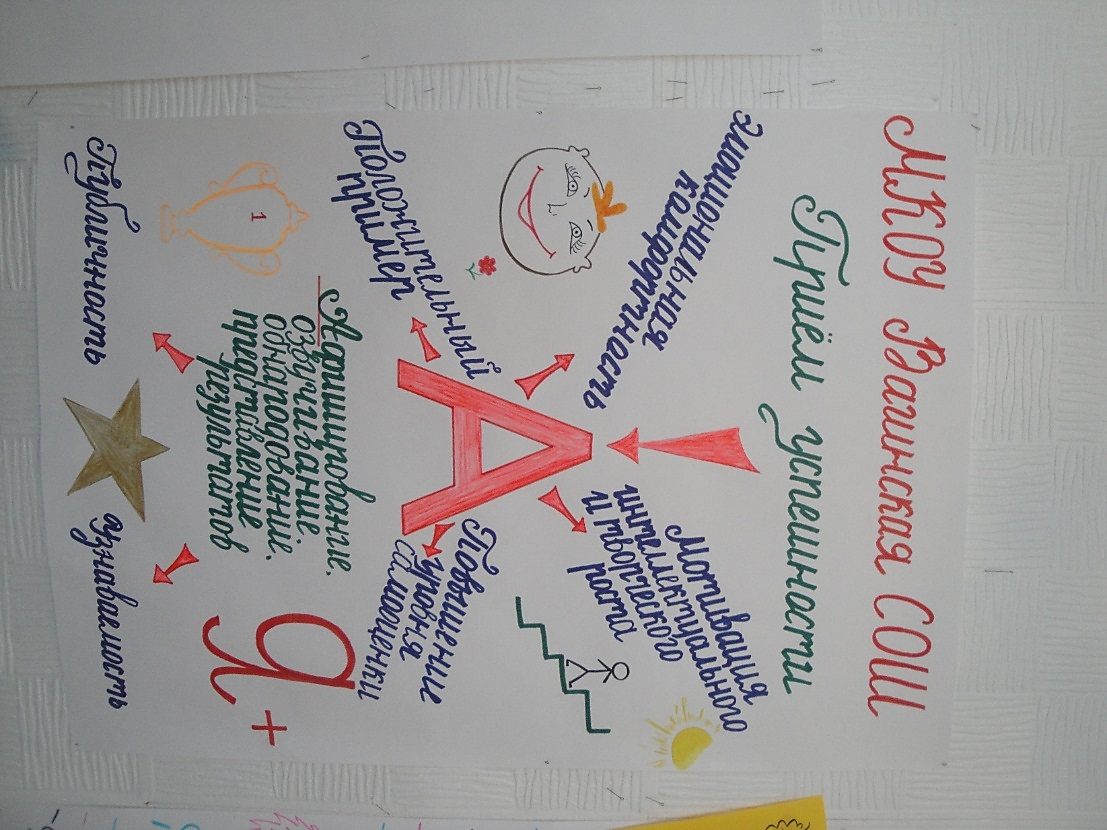 МКОУ Вагинская СОШ
Приём успешности
эмоциональная
комфортность
Мотивация
интеллектуального
и творческого
роста
А
Положительный
пример
Повышение
уровня
самооценки
Афиширование.
озвучивание.
обнародование.
представление
результатов
1
Я +
Публичность
Узнаваемость